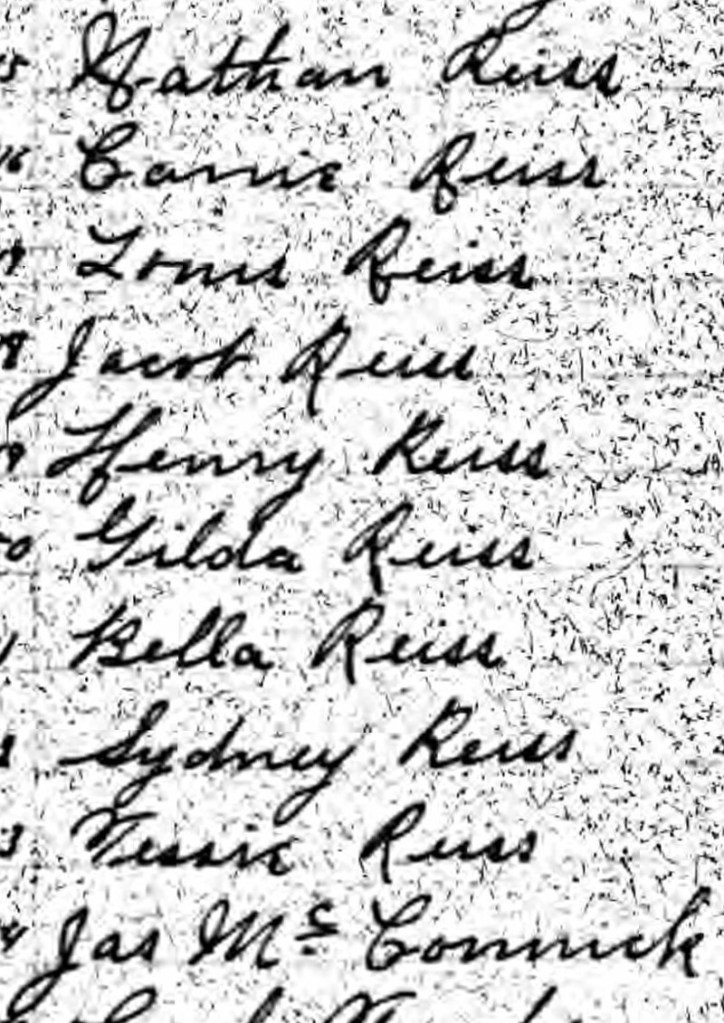 Nathan Reiss
Carrie Reiss
Louis Reiss
Jacob Reiss
Henry Reiss
Gilda Reiss
Bella Reiss
Sydney Reiss
Tessie Reiss
Jas McCormick